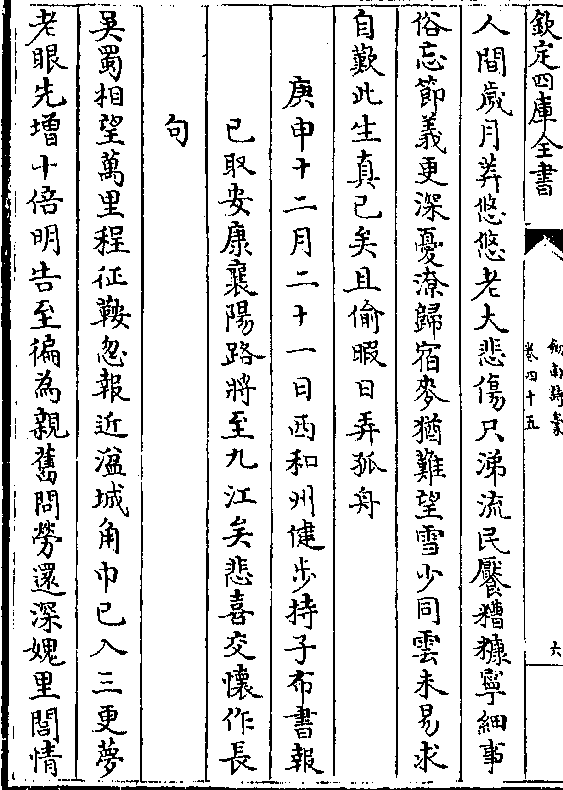 欽定四庫全書
劍南詩藁
卷四十五
六
人間歲月莽悠悠老大悲傷只涕流民饜糟糠寧細事
俗忘節義更深憂潦歸宿麥猶難望雪少同雲未易求
自歎此生真已矣且偷暇日弄孤舟
庚申十二月二十一日西和州健步持子布書報
已取安康襄陽路將至九江矣悲喜交懷作長
句
吳蜀相望萬里程征鞍忽報近湓城角巾已入三更夢
老眼先增十倍明吿至徧為親舊問勞還深媿里閭情